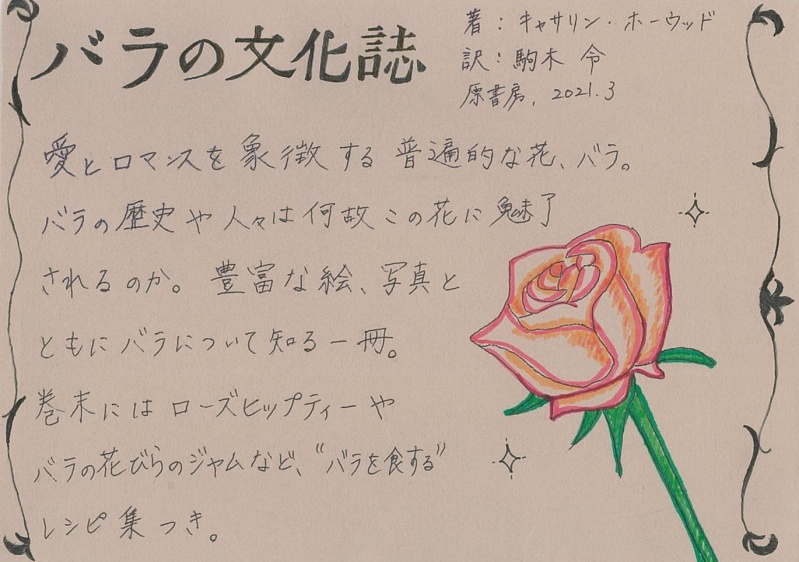 バラの文化誌
著：キャサリン・ホーウッド
訳：駒木 令
原書房, 2021.3
愛とロマンスを象徴する普遍的な花、バラ。
バラの歴史や人々は何故この花に魅了
されるのか。豊富な絵、写真と
ともにバラについて知る一冊。
巻末にはローズヒップティーや
バラの花びらのジャムなど、“バラを食する”
レシピ集つき。